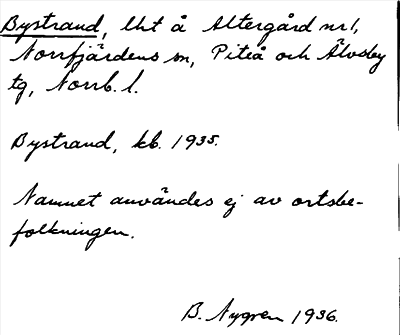 Bystrand, lht å Altergård nr 1,
Norrfjärdens sn, Piteå och Älvsby
tg, Norrb. l.
Bystrand, kb. 1935.
Namnet användes ej av ortsbe-
folkningen.
B. Nygren 1936.